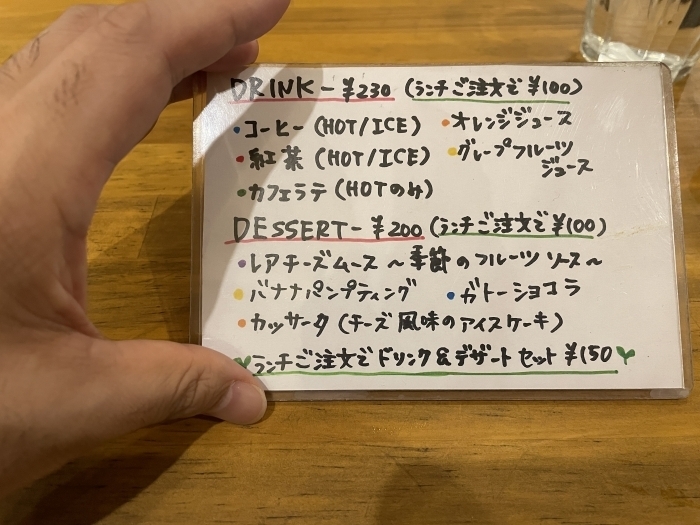 DRINK - ¥230 (ランチご注文で ¥100)
•コーヒー (HOT/ICE) •オレンジジュース
•紅茶 (HOT/ICE) •グレープフルーツ
ジュース
•カフェラテ (HOTのみ)
DESSERT - ¥200 (ランチご注文で ¥100)
•レアチーズムース ～季節のフルーツソース～
•バナナパンプティング •ガトーショコラ
•カッサータ (チーズ風味のアイスケーキ)
ランチご注文で ドリンク&デザート セット ¥150